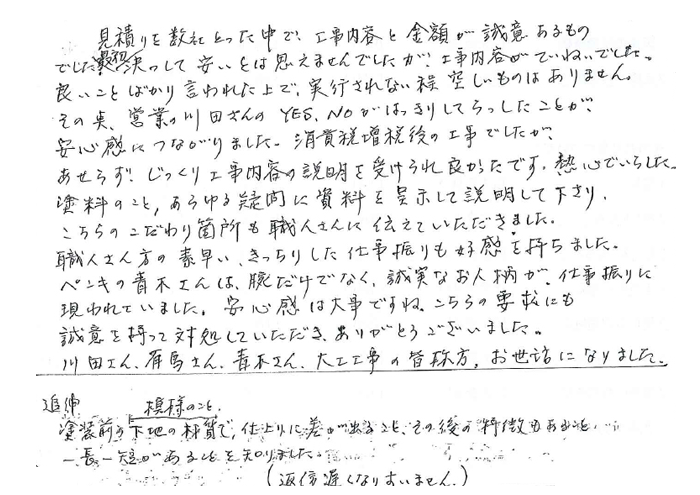 見積りを数社とった中で、工事内容と金額が誠意あるもの
でした。決して安いとは思えませんでしたが、工事内容がていねいでした。
良いことばかり言われた上で、実行されない程空しいものはありません。
その点、営業の川田さんのYES、NOがはっきりしてらっしたことが、
安心感につながりました。消費税増税後の工事でしたが、
あせらず、じっくり工事内容の説明を受けられ良かったです。熱心でいらした。
塗料のこと、あらゆる疑問に資料を呈示して説明して下さり、
こちらのこだわり箇所も職人さんに伝えていただきました。
職人さん方の素早い、きっちりした仕事振りも好感を持ちました。
ペンキの青木さんは、腕だけでなく、誠実なお人柄が、仕事振りに
現われていました。安心感は大事ですね。こちらの要求にも
誠意を持って対処していただき、ありがとうございました。
川田さん、有馬さん、青木さん、大工工事の皆様方、お世話になりました。
追伸 模様のこと、
塗装前の下地の材質で、仕上りに差が出ること、その後の特徴もあること、
一長一短があることを知りました。
(返信遅くなりすいません。)